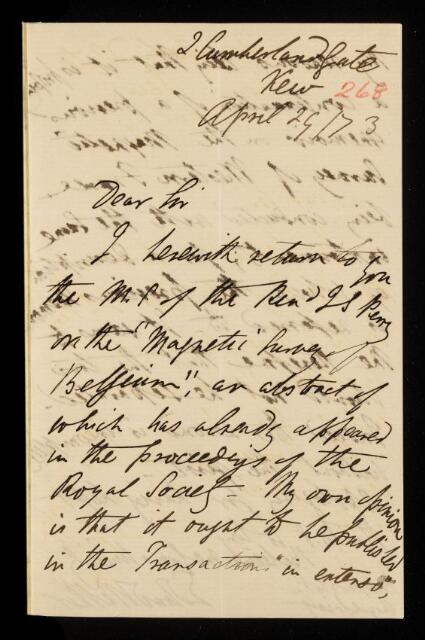 2 Cumberland Gate
Kew 268
April 29/73
Dear Sir
I herewith return to you
the M.S. of the Revd. S J Perry
on the "Magnetic Survey of
Belgium", an abstract of
which has already appeared
in the proceedings of the
Royal Society – My own opinion
is that it ought to be published
in the Transactions "in extenso",